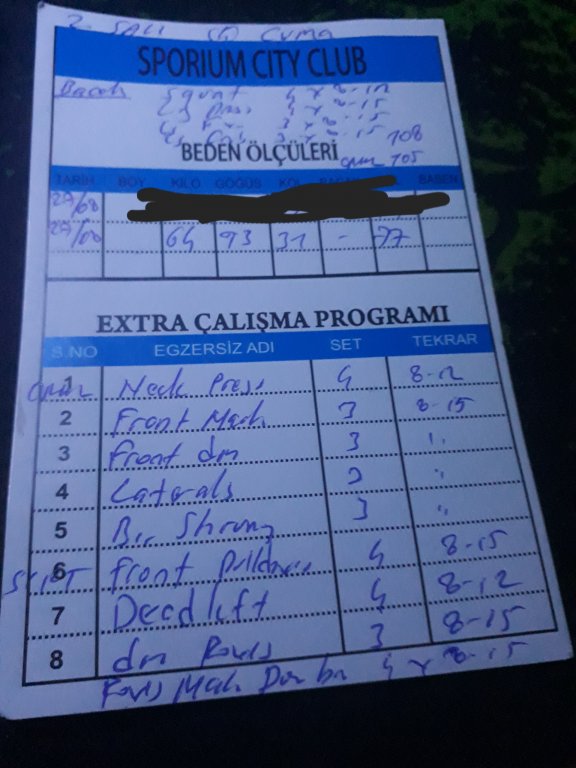 2. SALI CUMA
SPORIUM CITY CLUB
Bacak Squat 4 x 8-12
Press 4 x 8-15
3 x 8-15
3 x 8-15 108
BEDEN ÖLÇÜLERİ
omuz 105
TARİH BOY KİLO GÖĞÜS KOL BASEN
64 93 31 - 77
EXTRA ÇALIŞMA PROGRAMI
S.NO EGZERSİZ ADI SET TEKRAR
omuz 1 Neck Press 4 8-12
2 Front Mach 3 8-15
3 Front dm 3 "
4 Laterals 3 "
5 Shrung 3 "
SIRT 6 Front Pulldown 4 8-15
7 Deedlift 4 8-12
8 dm Rows 3 8-15
Rows Mach 4 x 8-15